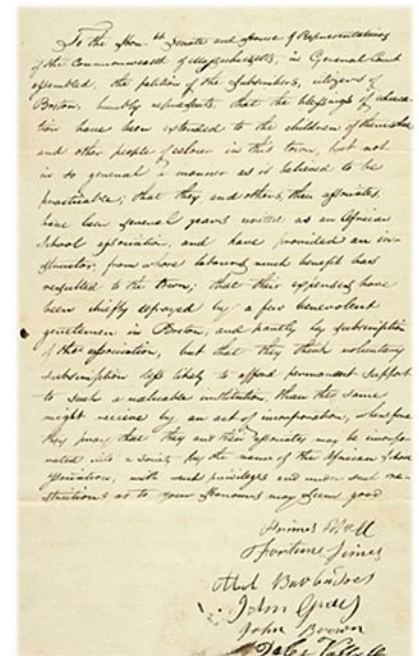 To the Hon. ble Senate and House of Representatives
of the Commonwealth of Massachusetts, in General Court
assembled, the petition of the Subscribers, citizens of
Boston, humbly represents, that the blessings of educa
tion have been extended to the children of themselves
and other people of colour in this town, but not
in so general a manner as is believed to be
practicable; that they and others, their associates,
have been several years united as an African
School association, and have provided an in-
structor, from whose labours much benefit has
resulted to the town; that their expenses have
been chiefly defrayed by a few benevolent
gentlemen in Boston, and partly by subscription
of the association, but that they think voluntary
subscription less likely to afford permanent support
to such a valuable institution, than the same
might receive by an act of incorporation, wherefore
they pray that they and their associates may be incorpo
rated into a society by the name of the African School
Association, with such privileges and under such re-
strictions as to your Honours may seem good
Primus Hall
Fortune Symes
Abel Barbadoes
John Gray
John Brown